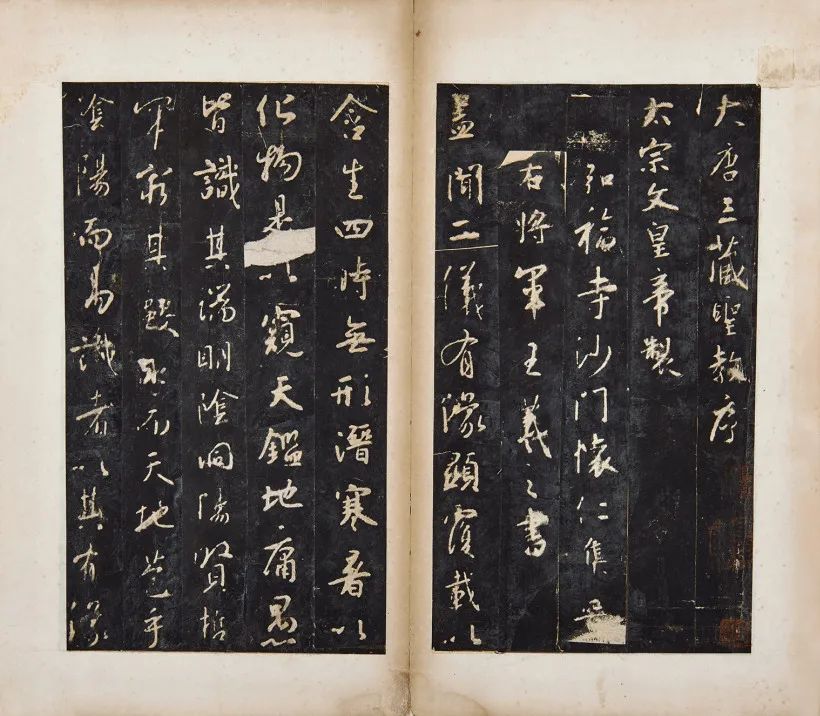 大唐三藏聖教序
太宗文皇帝製
弘福寺沙門懷仁集晉
右將軍王羲之書
蓋聞二儀有像顯覆載以
含生四時無形潛寒暑以
化物是以窺天鑑地庸愚
皆識其端明陰洞陽賢哲
罕窮其數然而天地苞乎
陰陽而易識者以其有像